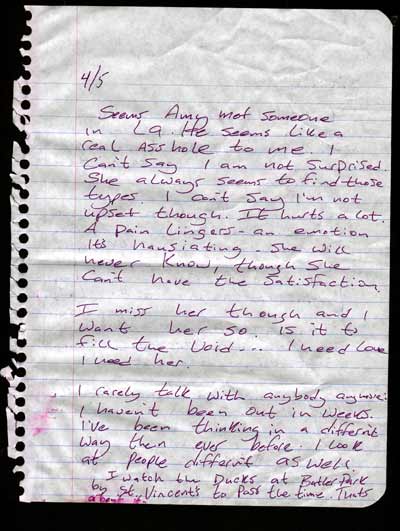 4/5
Seems Amy met someone
in LA. He seems like a
real Asshole to me. I
Can't Say I am not Surprised.
She always seems to find those
types. I can't say I'm not
upset though. It hurts a lot.
A pain lingers - an emotion
Its hausiating. She will
never Know, though She
Can't have the Satisfaction.
I miss her though and I
want her so. is it to
fill the Void... I need Love
I need her.
I rarely talk with anybody anymore.
I haven't been out in weeks.
I've been thinking in a different
way then ever before. I Look
at people different as well.
I watch the Ducks at Butler Park
by St. Vincents to Pass the time. Thats
about it.